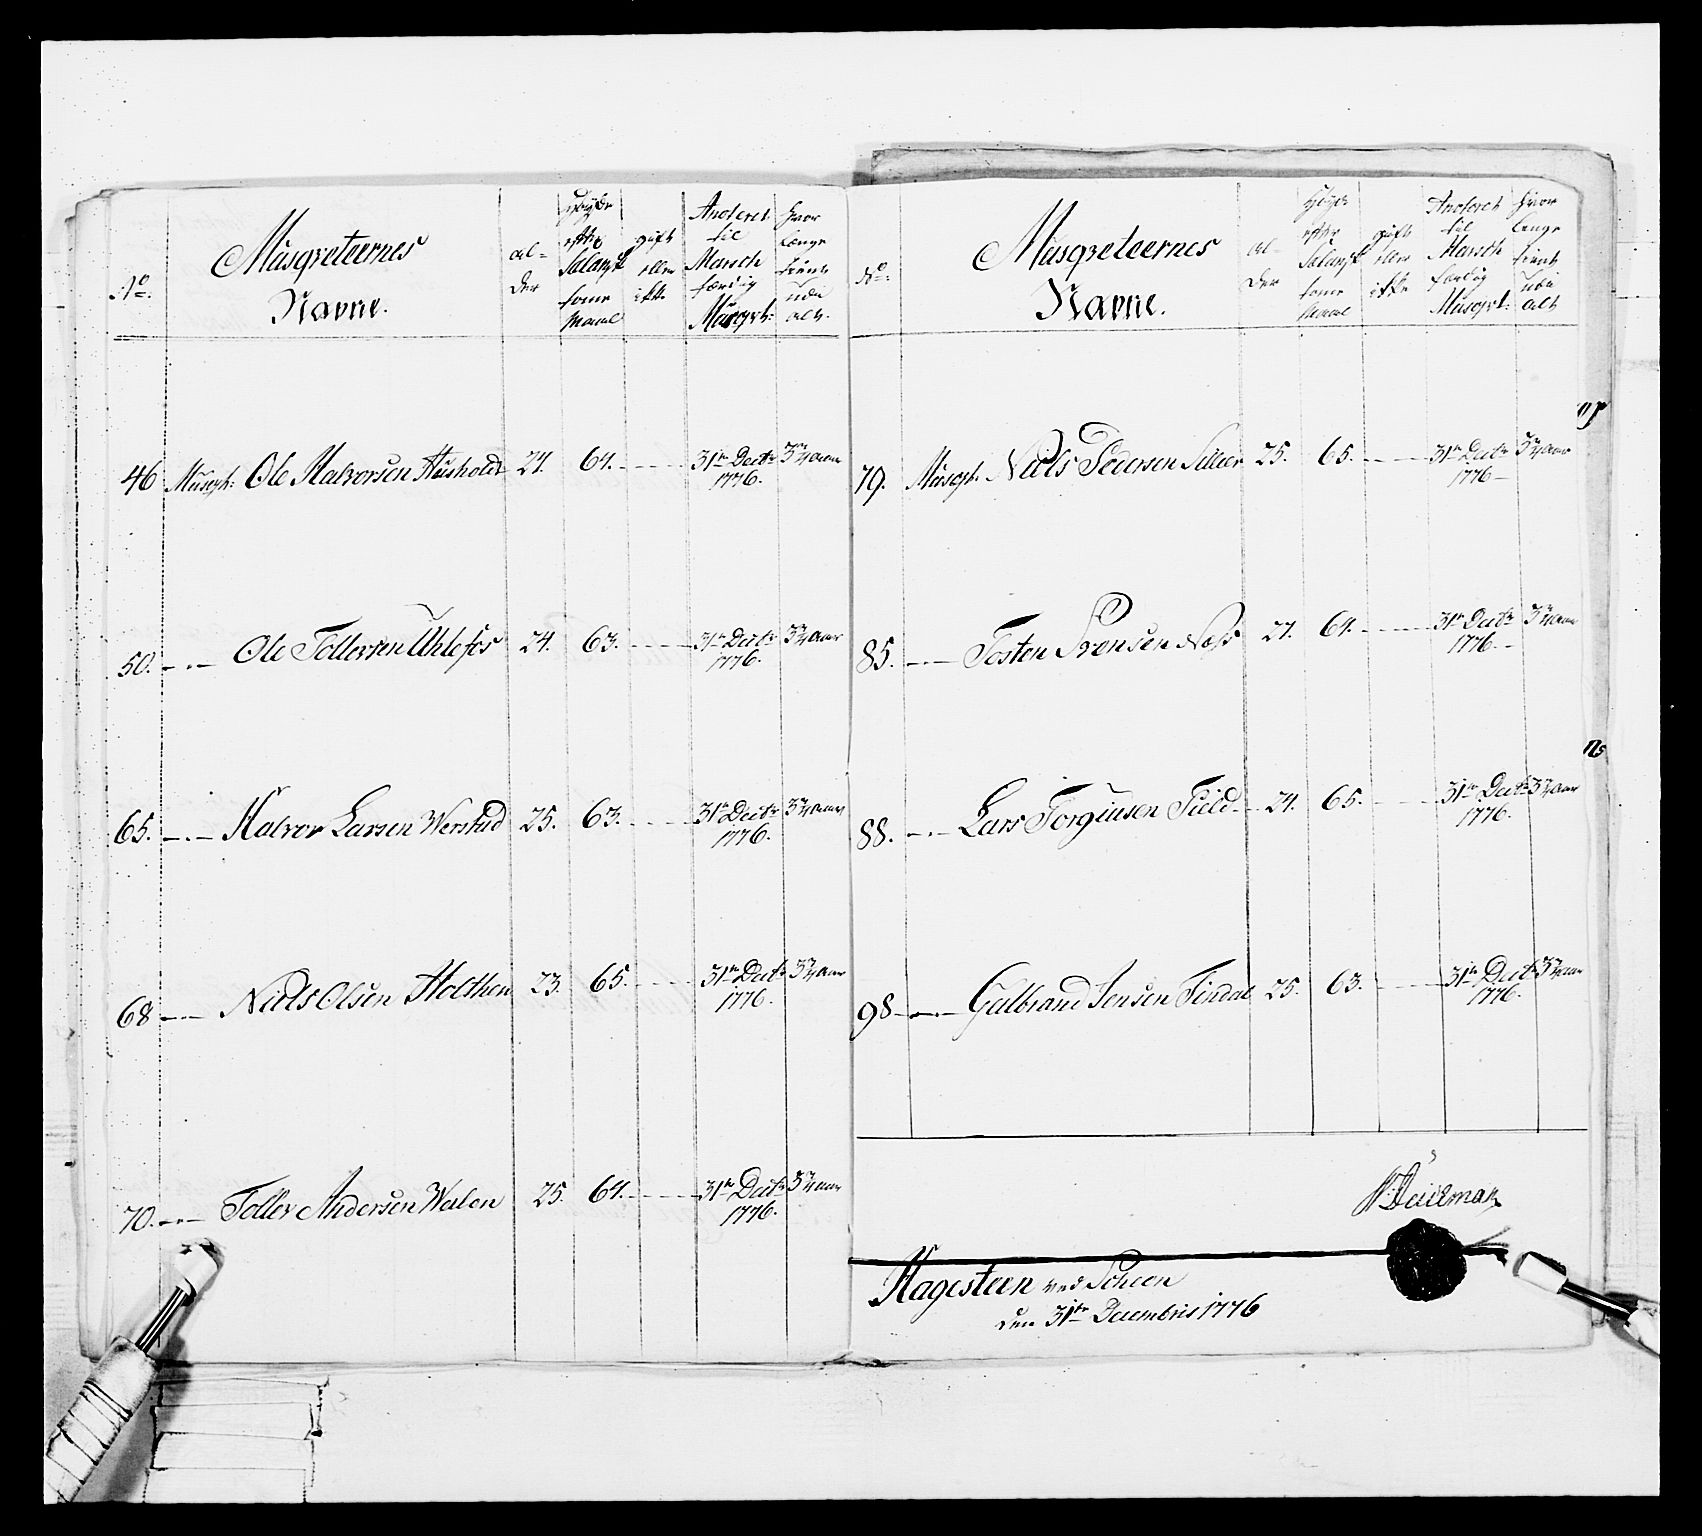 No:
Musqveteernes
Navne.
al-
der
Høyde
efter
Salansk
tome
Maal
gift
eller
ikke
Anderet
til
Marsch
færdig
Musqvt:
hvor
længe
tient
udi
alt.
46 Musqt: Ole Halvorsen Hüsholdt 24. 64. 31te Decbr 1776. 3 1/2 aar
50. Ole Tollersen Uhlefos 24. 63. 31te Decbr 1776. 3 1/2 aar
65. Halvor Larsen Werstad 25. 63. 31te Decbr 1776. 3 1/2 aar
68 Niels Olsen Holthen 23. 65. 31te Decbr 1776. 3 1/2 aar
70. Toller Andersen Walen 25. 64. 31te Decbr 1776. 3 1/2 aar
No:
Musqveteernes
Navne.
al-
der
Høyde
efter
Salansk
tome
Maal
gift
eller
ikke
Anderet
til
Marsch
færdig
Musqvt:
hvor
længe
tient
udi
alt
79. Musqt: Niels Pedersen 25. 65. 31te Decbr 1776 3 1/2 aar
85. Tosten Svensen Næss 24. 64. 31te Decbr 1776. 3 1/2 aar
88. Lars Torgiusen Field 24. 65. 31te Decbr 1776. 3 1/2 aar
98 Gulbrand Jensen Findal 25. 63. 31te Decbr 1776. 3 1/2 aar
Hagesteen ved Scheen
den 31te Decembris 1776